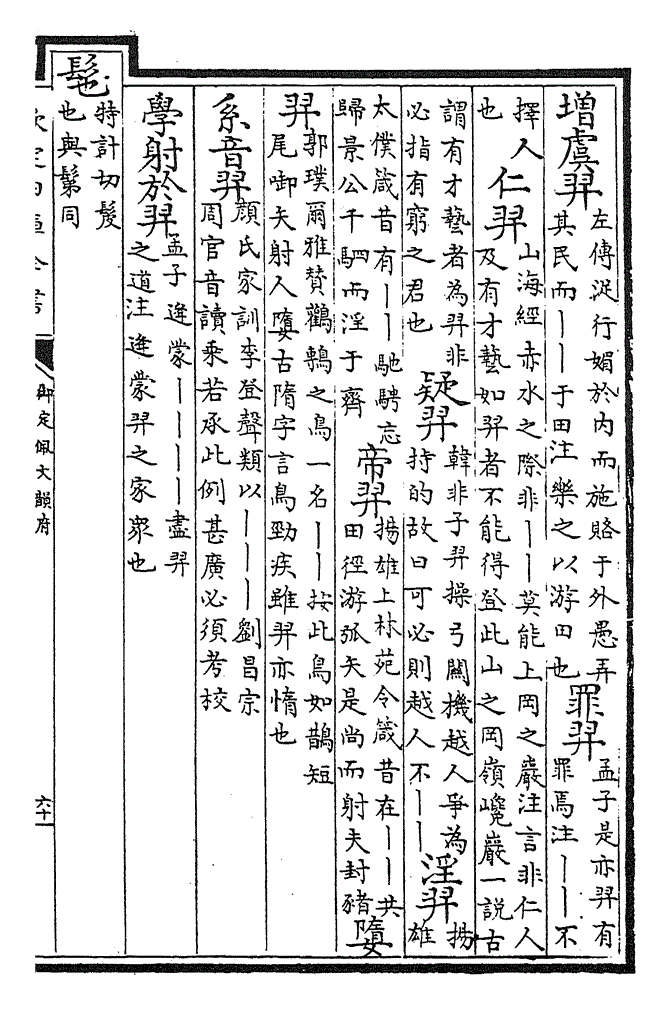 增虞羿
左傳浞行媚於內而施賂于外愚弄
其民而丨丨于田注樂之以游田也
罪羿
孟子是亦羿有
罪焉注丨丨不
擇人
也
仁羿
山海經赤水之際非丨丨莫能上岡之巖注言非仁人
及有才藝如羿者不能得登此山之岡嶺巉巖一說古
謂有才藝者為羿非
必指有窮之君也
疑羿
韓非子羿操弓關機越人爭為
持的故曰可必則越人不丨丨
淫羿
揚
雄
太僕箴昔有丨丨馳騁忘
歸景公千駟而淫于齊
帝羿
揚雄上林苑令箴昔在丨丨共
田徑游弧矢是尚而射夫封豬
嫷
羿
郭璞爾雅贊鸛鷒之鳥一名丨丨按此鳥如鵲短
尾啣矢射人嫷古隋字言鳥勁疾雖羿亦惰也
系音羿
顏氏家訓李登聲類以丨丨丨劉昌宗
周官音讀乘若承此例甚廣必須考校
學射於羿
孟子逄蒙丨丨丨丨盡羿
之道注逄蒙羿之家衆也
髢
特計切髮
也與鬄同
欽定四庫全書
御定佩文韻府
六十